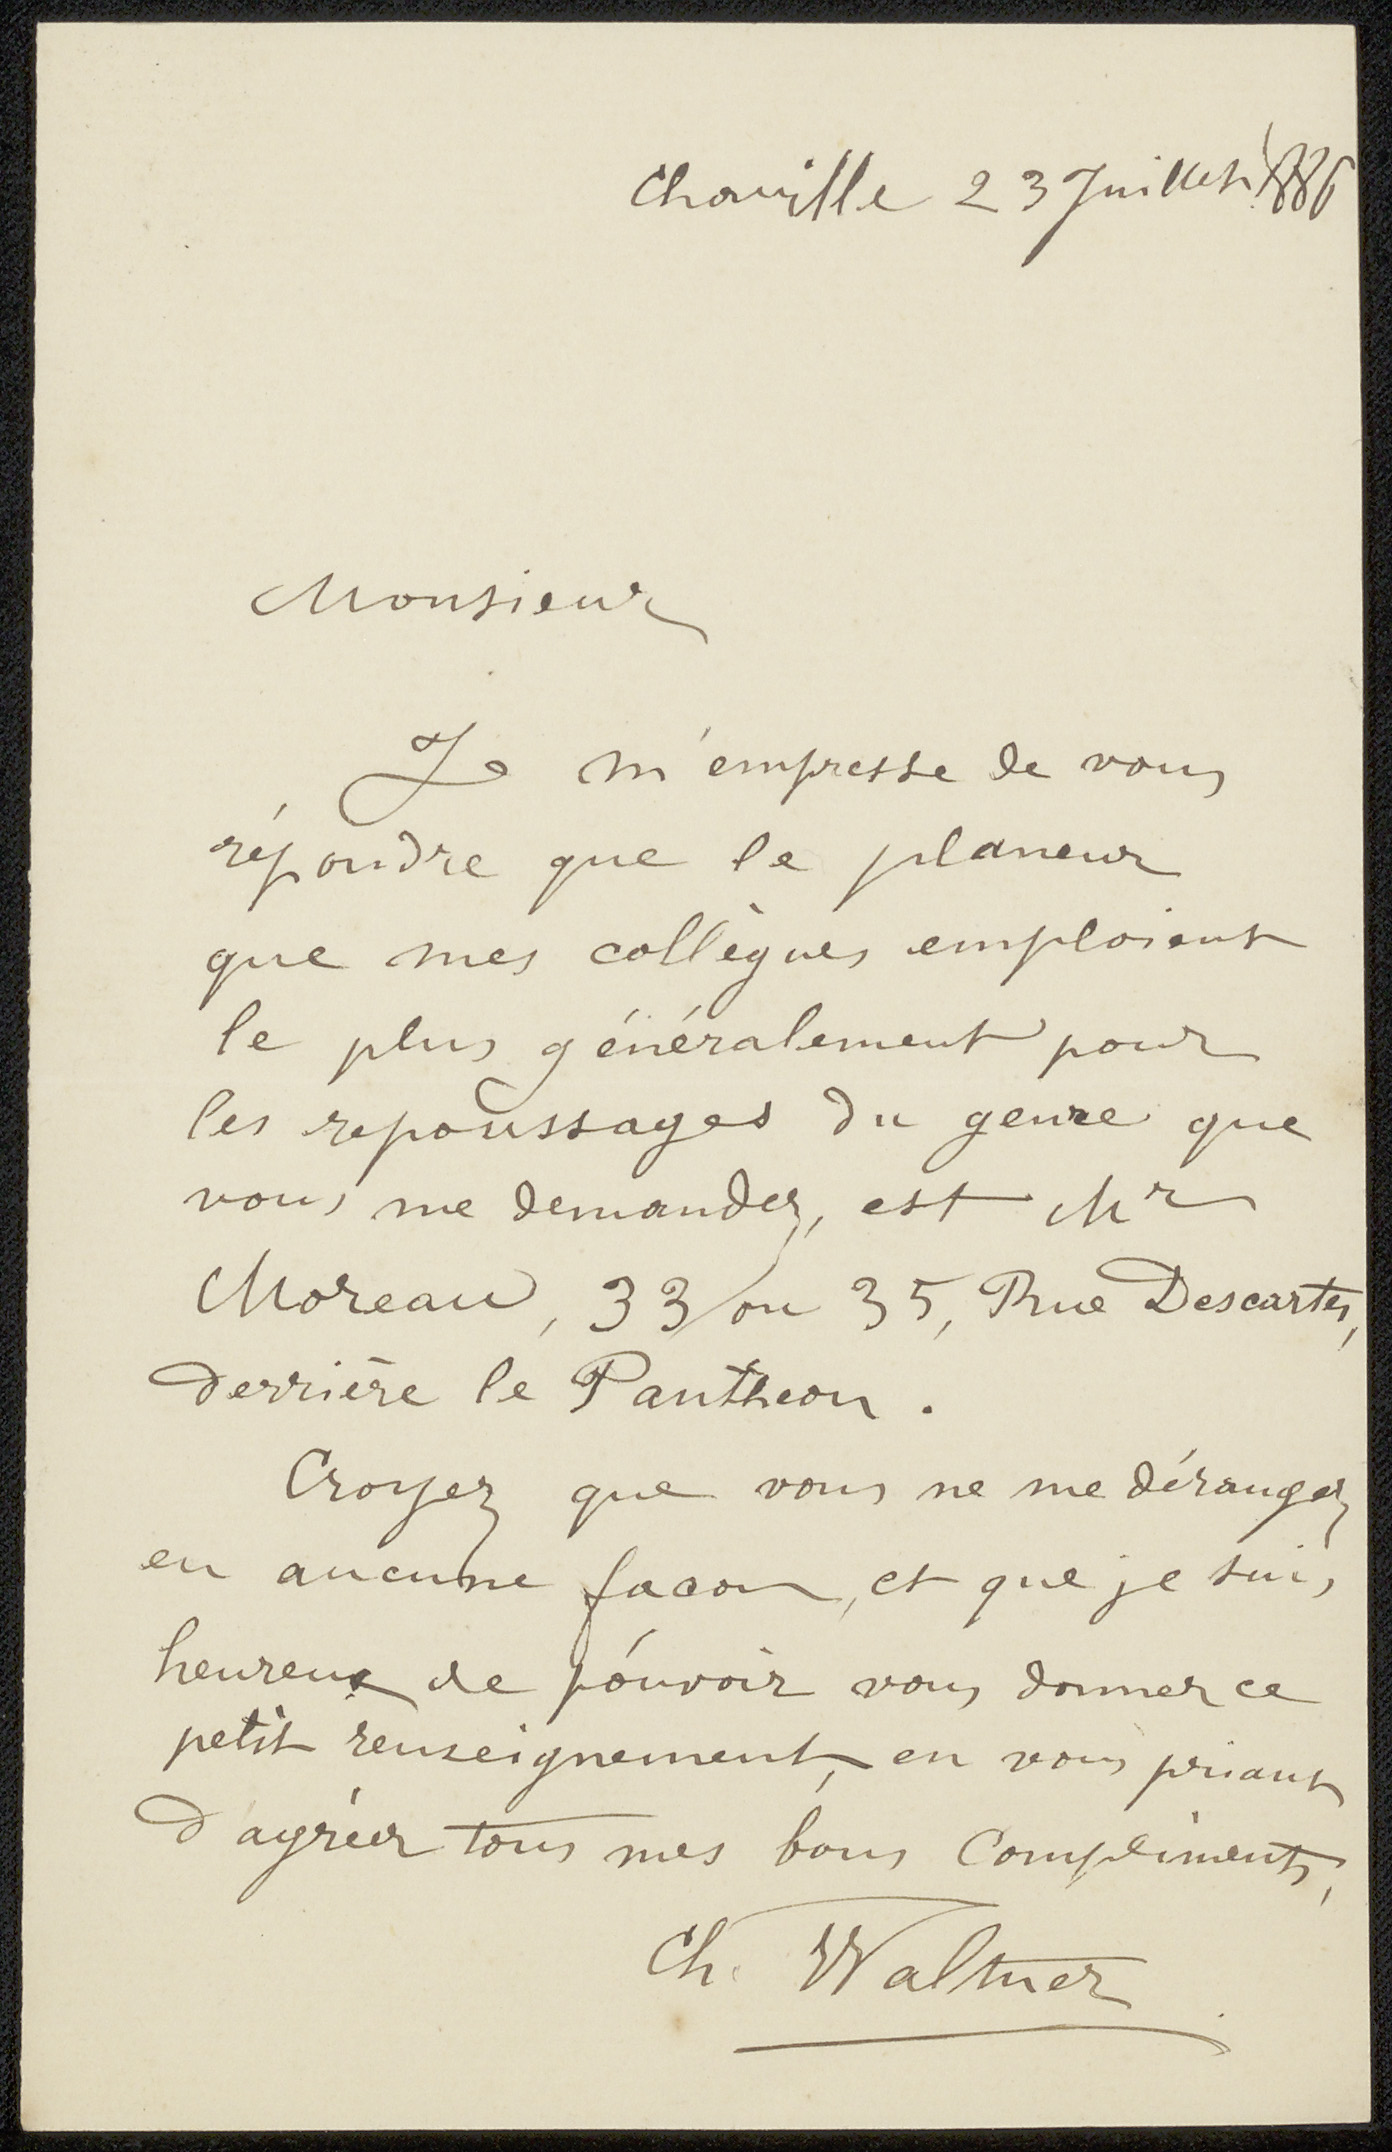 Chaville 23 Juillet 1886
Monsieur
Je m'empresse de vous
répondre que le planeur
que mes collègues emploient
le plus généralement pour
les repoussages du genre que
vous me demandez, est Mr
Moreau, 33 ou 35, Rue Descartes,
derrière le Pantheon.
Croyez que vous ne me dérangez
en aucune facon, et que je suis
heureux de pouvoir vous donner ce
petit renseignement, en vous priant
d'agréer tous mes bons Compliments,
Ch. Waltner